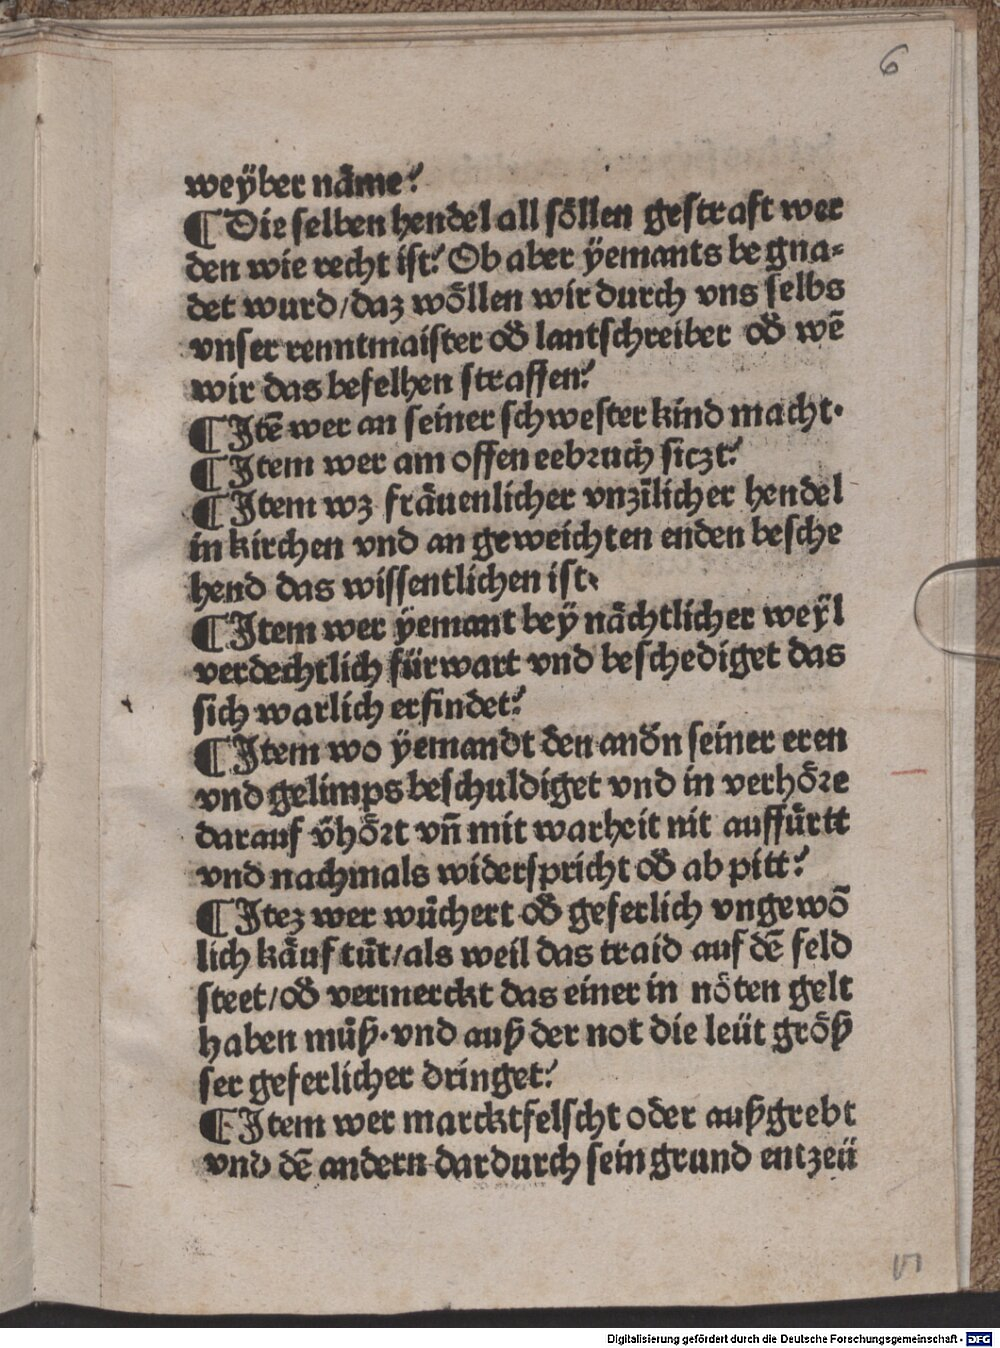 6
weÿber näme?
¶ Die selben hendel all söllen gestraft wer
den wie recht ist? Ob aber ÿemants be gna⸗
det wurd/daz wöllen wir durch vns selbs
vnser renntmaister od̾ lantschreiber od̾ wē
wir das befelhen straffen?
¶ Itē wer an seiner schwester kind macht·
¶ Item wer am offen eebruch siczt?
¶ Item wz fräuenlicher vnzīlicher hendel
in kirchen vnd an geweichten enden besche
hend das wissentlichen ist·
¶ Item wer ÿemant beÿ nächtlicher weÿl
verdechtlich fürwart vnd beschediget das
sich warlich erfindet?
¶ Item wo ÿemandt den and̾n seiner eren
vnd gelimps beschuldiget vnd in verhöre
darauf v̾hört vn̄ mit warheit nit auffürtt
vnd nachmals widerspricht od̾ ab pitt?
¶ Itez wer wůchert od̾ geferlich vngewō
lich käuf tůt/als weil das traid auf dē feld
steet/od̾ vermerckt das einer in nöten gelt
haben můß·vnd auß der not die leüt größ
ser geferlicher dringet?
¶ Item wer marcktfelscht oder außgrebt
vnd dē andern dardurch sein grund entzeü
VI
Digitalisierung gefördert durch die Deutsche Forschungsgemeinschaft - DFG